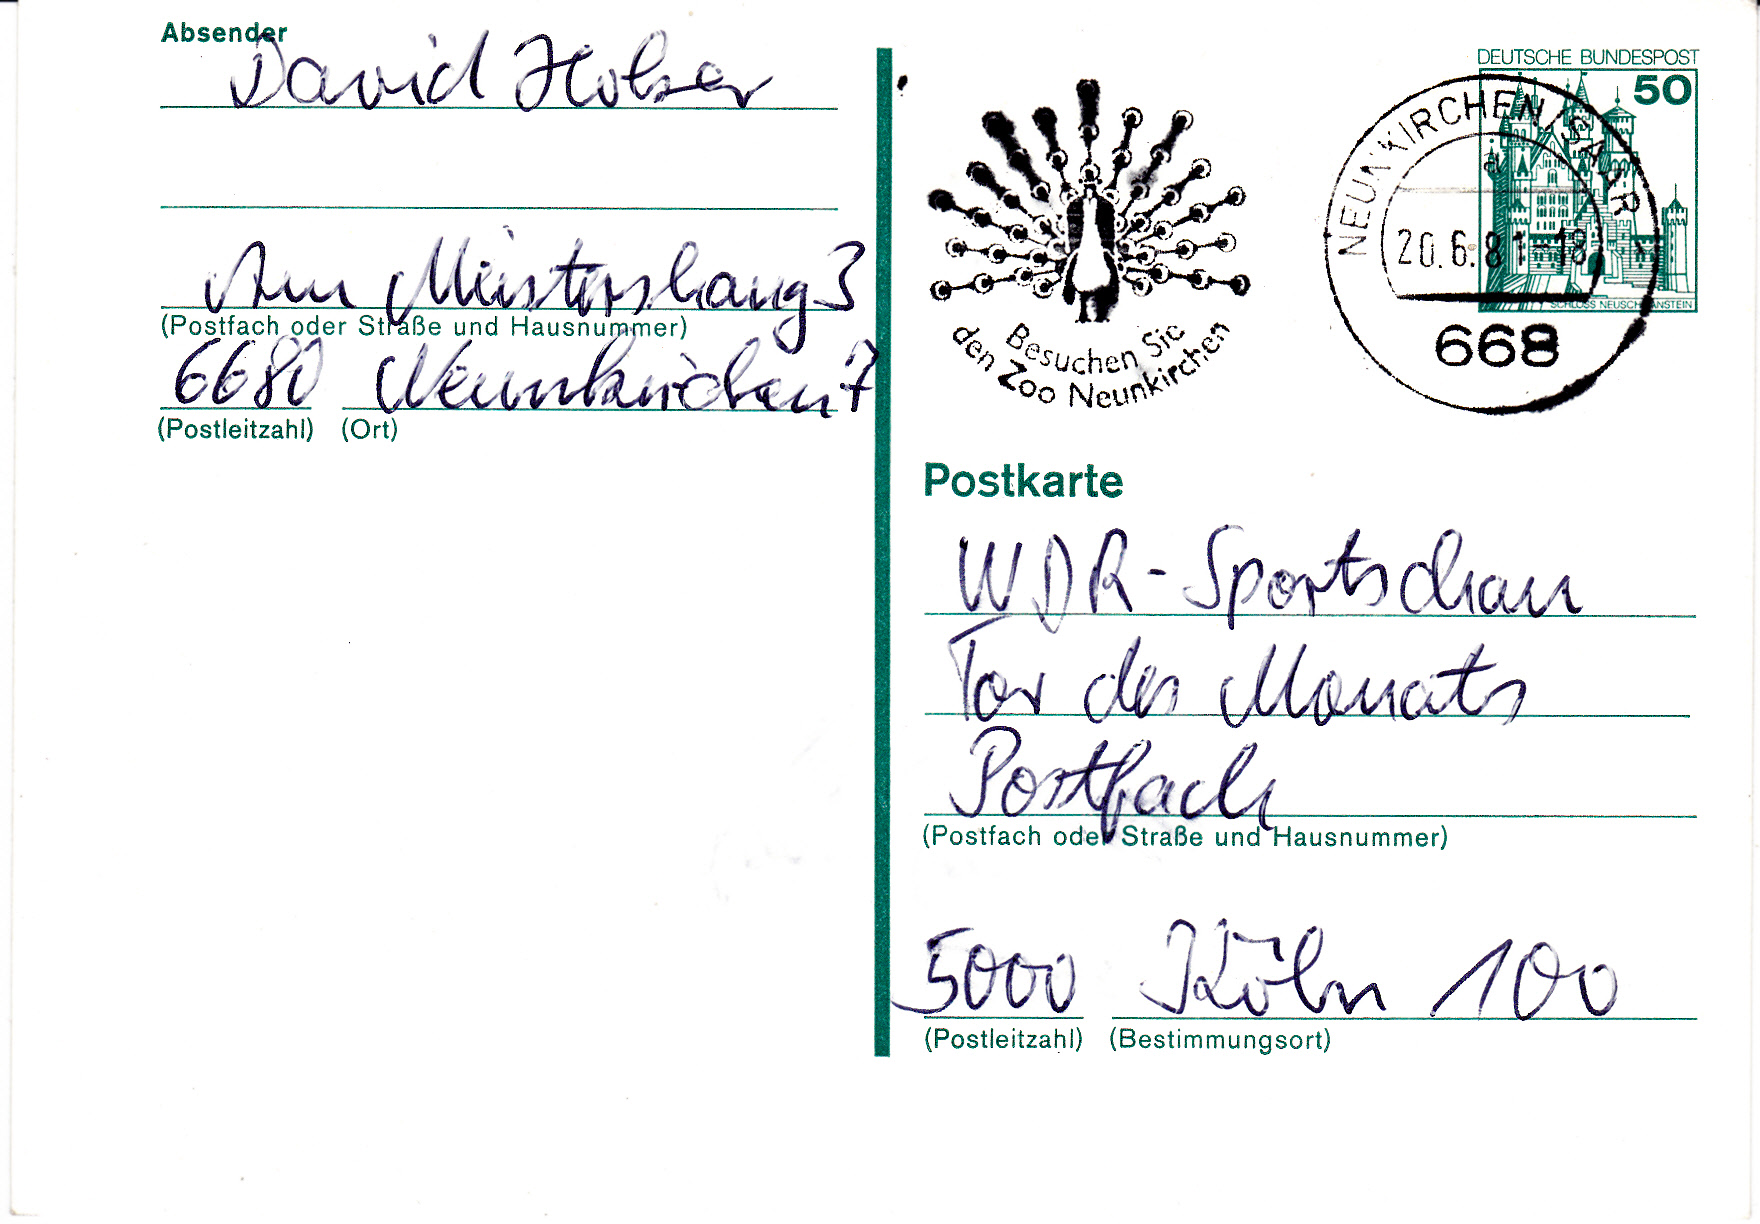 Absender
David Holzer
Am Meistershang 3
(Postfach oder Straße und Hausnummer)
6680 Neunkirchen 7
(Postleitzahl) (Ort)
Besuchen Sie
den Zoo Neunkirchen
DEUTSCHE BUNDESPOST
50
SCHLOSS NEUSCHWANSTEIN
NEUNKIRCHEN/SAAR
a
20.6.81-18
668
Postkarte
WDR-Sportschau
Tor des Monats
Postfach
(Postfach oder Straße und Hausnummer)
5000 Köln 100
(Postleitzahl) (Bestimmungsort)